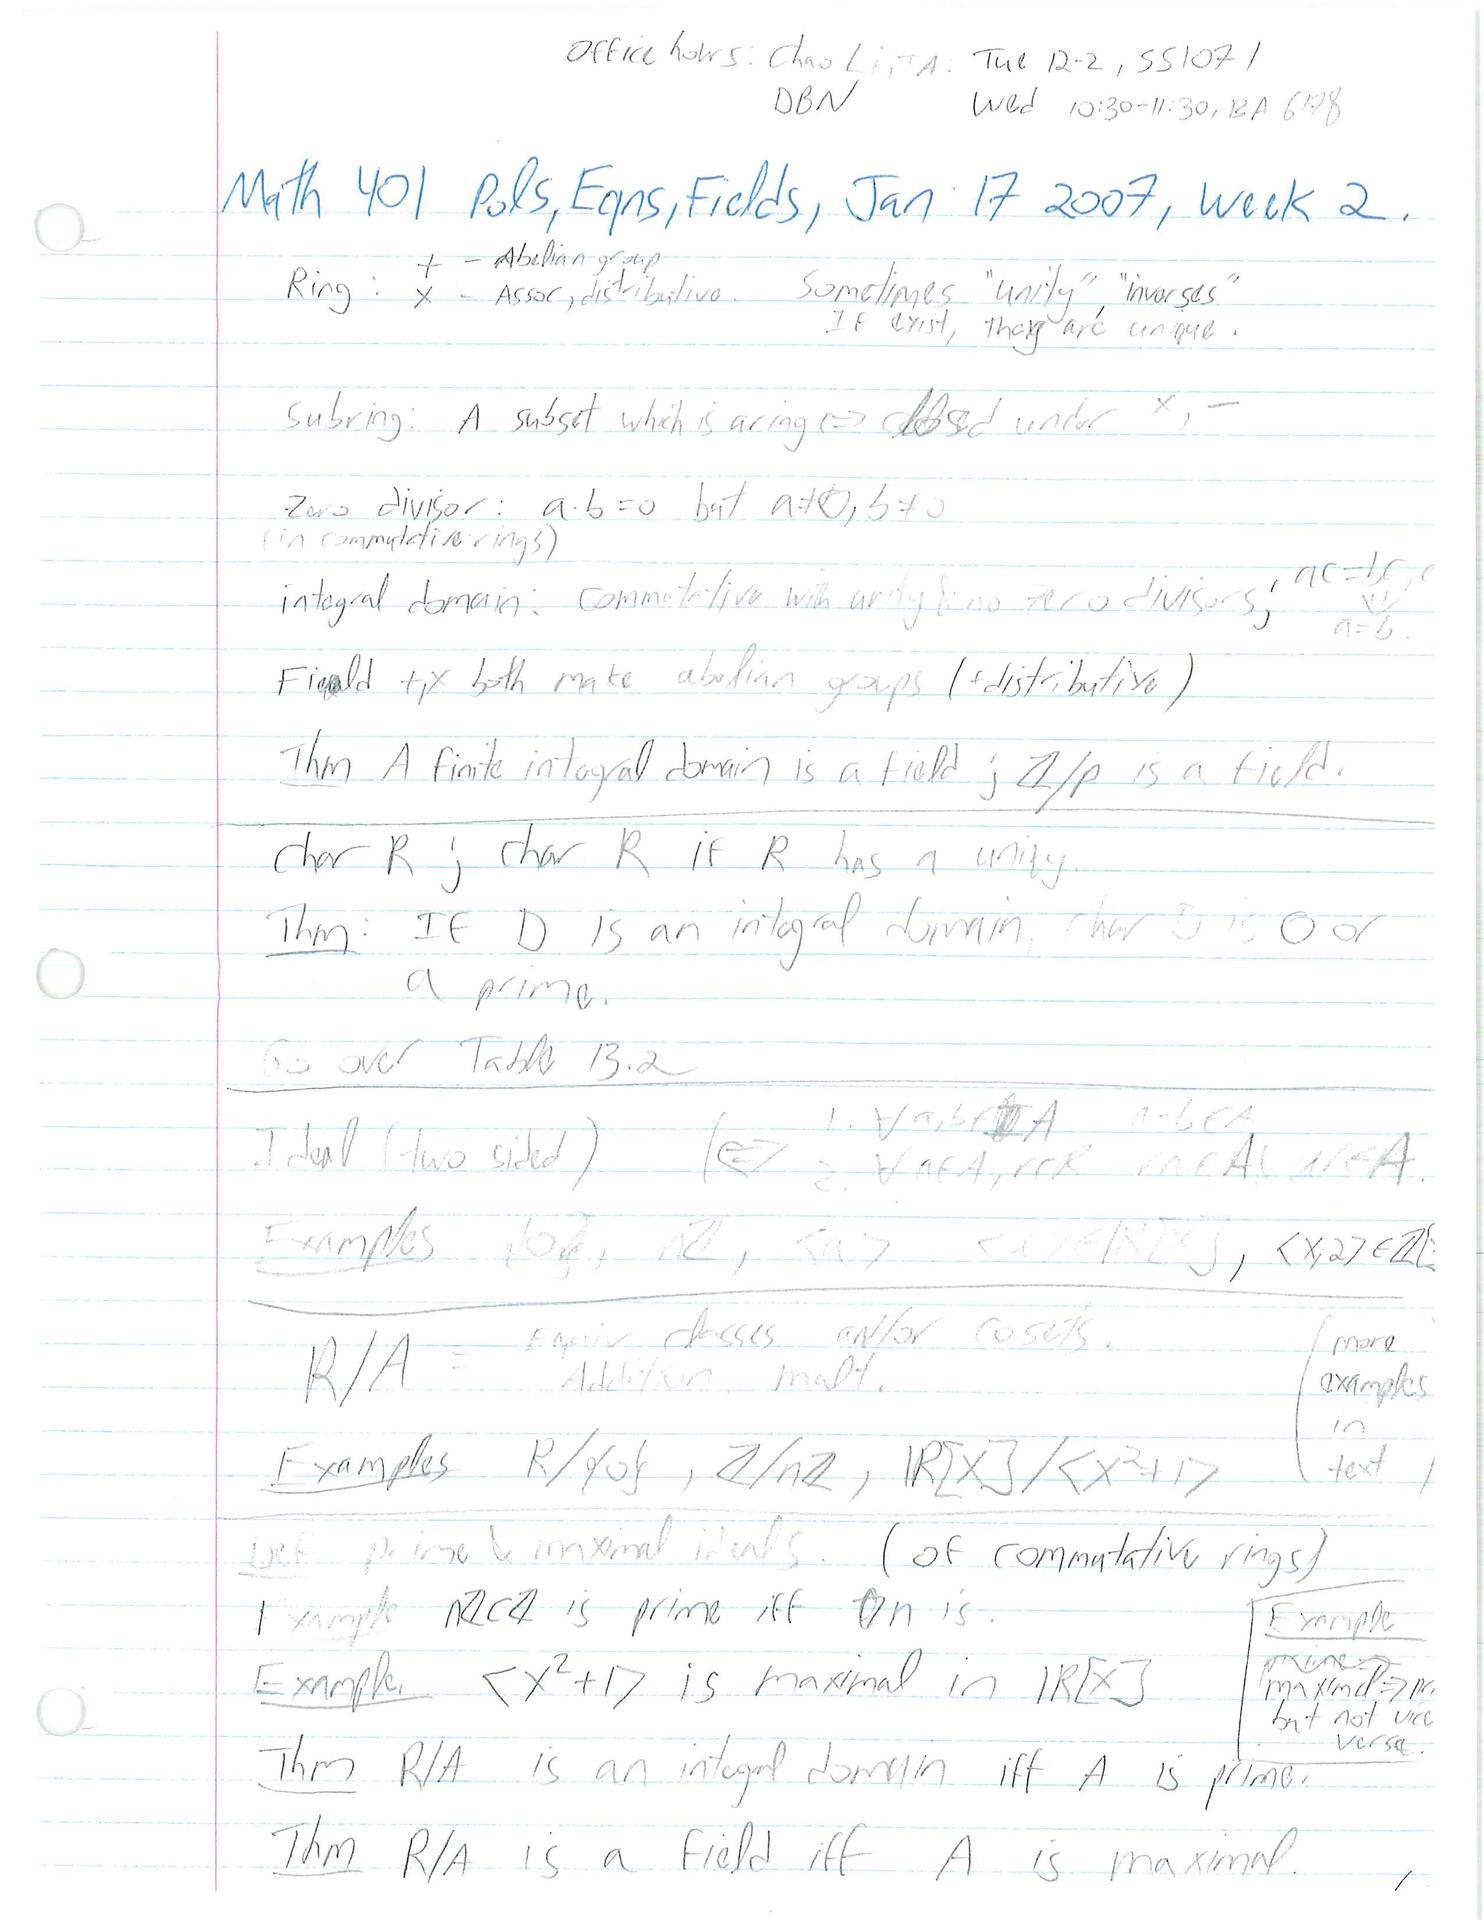 Office hours: Chao Li, TA: Tue 12-2, SS1071
DBN Wed 10:30-11:30, BA 6178
Math 401 Pols, Eqns, Fields, Jan 17 2007, Week 2.
Ring: + - Abelian group
× - Assoc, distributive. Sometimes "unity", "inverses"
If exist, they are unique.
Subring: A subset which is a ring <=> closed under ×, -
Zero divisor: a·b=0 but a≠0, b≠0
(in commutative rings)
integral domain: commutative with unity & no zero divisors; ac=bc, c
⇓
a=b.
Field +,× both make abelian groups (+distributive)
Thm A finite integral domain is a field; ℤ/p is a field.
char R; char R if R has a unity.
Thm: If D is an integral domain, char D is 0 or
a prime.
Go over Table 13.2
Ideal (two sided) (<=> 1. ∀a,b∈A a-b∈A
2. ∀a∈A, r∈R ra∈A, ar∈A.
Examples {0}, nℤ, <a> <x>∈ℝ[x], <x,2>∈ℤ[
R/A = Equiv classes and/or cosets.
Addition mult.
(more
examples
in
text)
Examples R/{0}, ℤ/nℤ, ℝ[x]/<x²+1>
Def prime & maximal ideals. (of commutative rings)
Example nℤ⊂ℤ is prime iff n is.
Example <x²+1> is maximal in ℝ[x]
Example
maximal => pr
but not vice
versa.
Thm R/A is an integral domain iff A is prime.
Thm R/A is a field iff A is maximal.